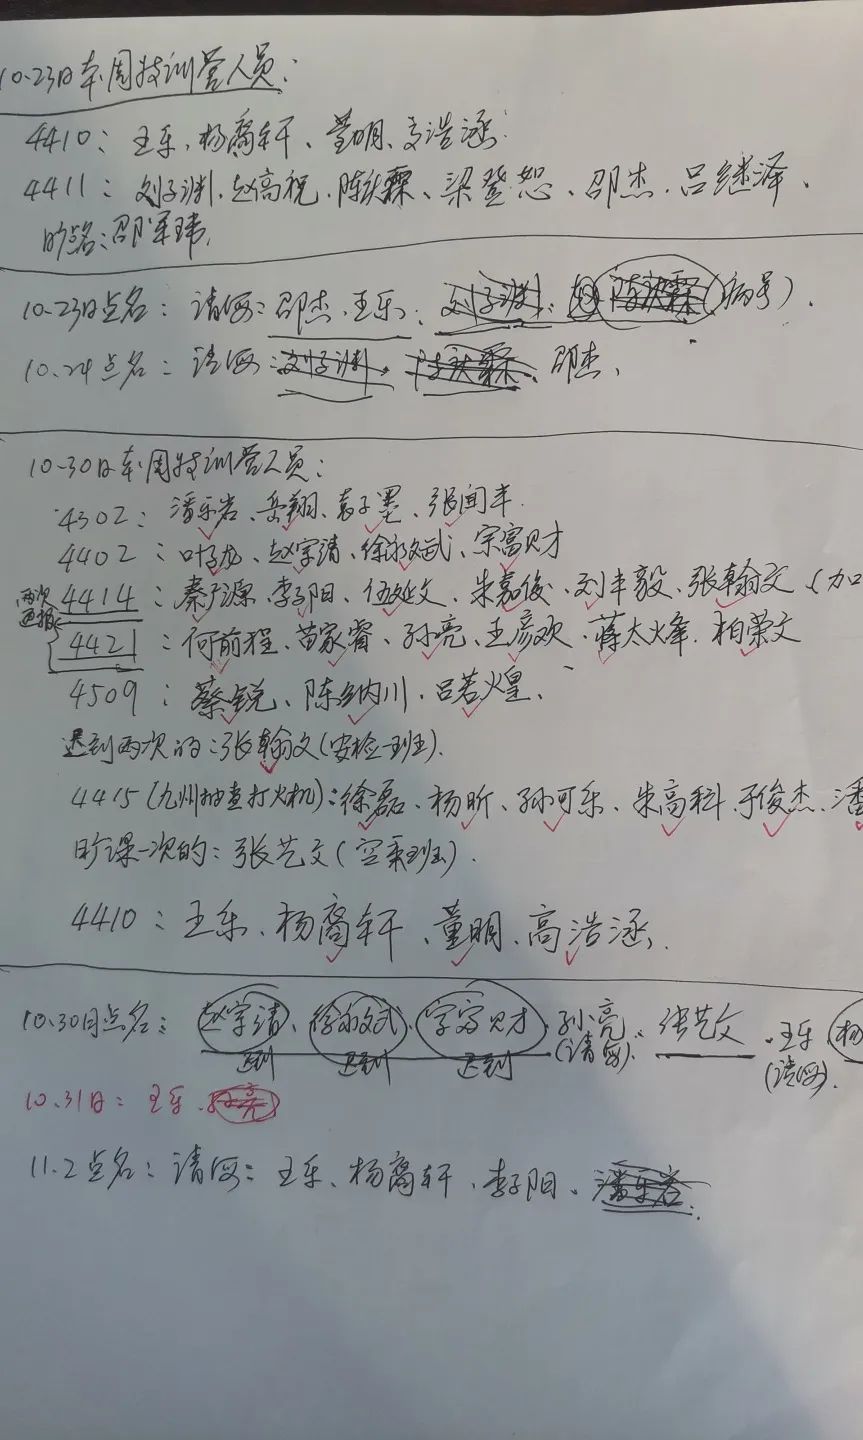 10.23日本周特训营人员：
4410：王乐、杨裔轩、董明、高浩涵
4411：刘子渊、赵高祝、陈轶霖、梁登恕、邵杰、吕继泽、
旷点名：邵军玮
10.23日点名：请假：邵杰、王乐、刘子渊、陈轶霖（病号）.
10.24点名：请假：刘子渊、陈轶霖、邵杰、
10.30日本周特训营人员：
4302：潘乐岩、岳翔、袁子墨、张闻丰.
4402：叶子龙、赵宇清、徐永斌、宗富财
两次通报 4414：秦广源、李子阳、伍延文、朱嘉俊、刘丰毅、张翰文、（加
4421：何前程、苗家睿、孙亮、王彦欢、蒋太火峰、柏荣文
4509：蔡锐、陈纳川、吕若煌、
迟到两次的：张翰文（安检一班）.
4415（九州抽查打火机）：徐磊、杨昕、孙可乐、朱高科、于俊杰、潘
旷课一次的：张艺文（空乘班）.
4410：王乐、杨裔轩、董明、高浩涵.
10.30日点名：赵宇清、徐永斌、宗富财、孙亮（请假）、张艺文、王乐（请假）、杨
迟到 迟到 迟到
10.31日：王乐、孙亮
11.2点名：请假：王乐、杨裔轩、李子阳、潘乐岩.